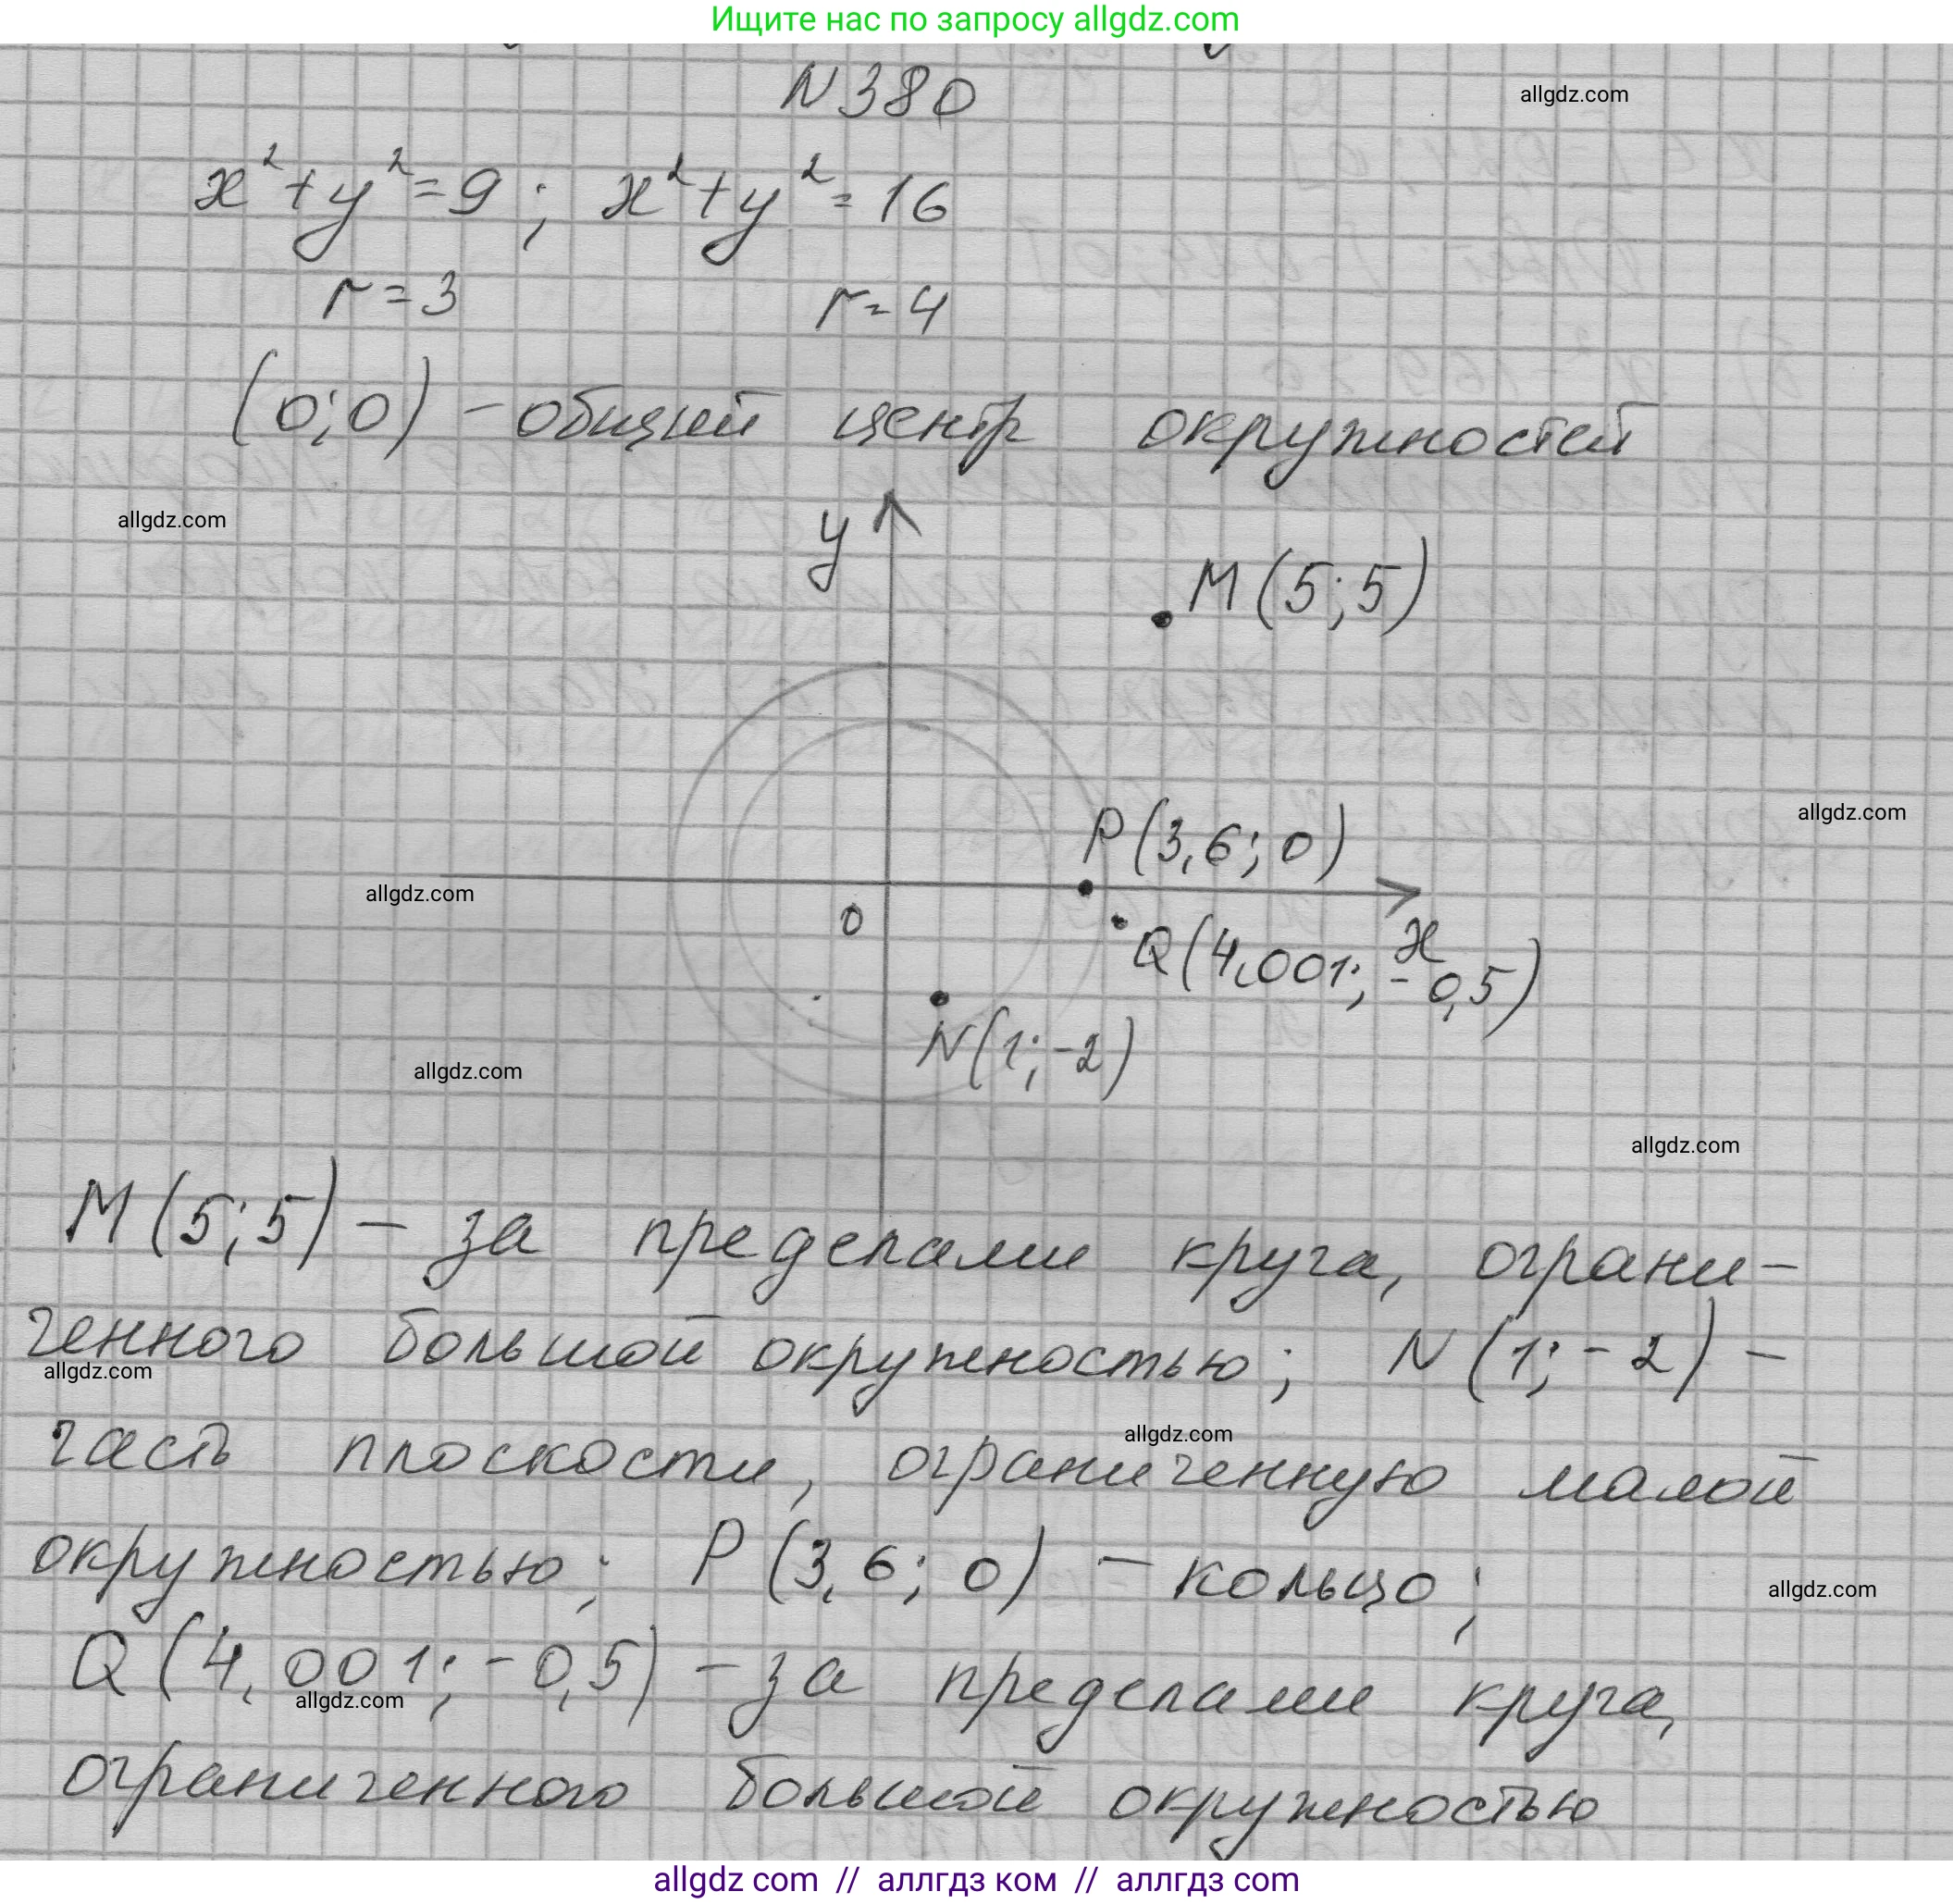 Ищите нас по запросу allgdz.com
N380
allgdz.com
x²+y²=9; x²+y²=16
r=3 r=4
(0;0) – общий центр окружностей
allgdz.com
y
M(5;5)
P(3,6;0)
allgdz.com
allgdz.com
0
x
Q(4,001; -0,5)
N(1;-2)
allgdz.com
allgdz.com
M(5;5) – за пределами круга, ограни-
ченного большой окружностью; N(1;-2) –
allgdz.com
часть плоскости, ограниченную малой
allgdz.com
окружностью; P(3,6;0) – кольцо;
allgdz.com
Q(4,001;-0,5) – за пределами круга,
allgdz.com
ограниченного большой окружностью
allgdz com // аллгдз ком // аллгдз com